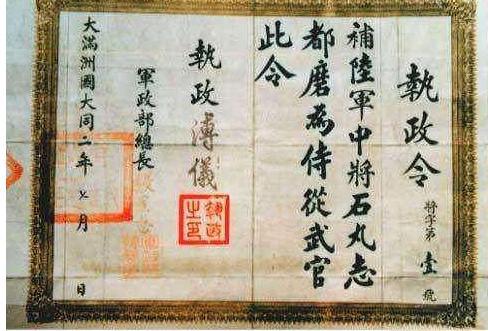 執政令
将字第壹號
補陸軍中將石丸志
都磨為侍從武官
此令
執政 溥儀
執政之印
軍政部總長
大滿洲國大同二年七月 日